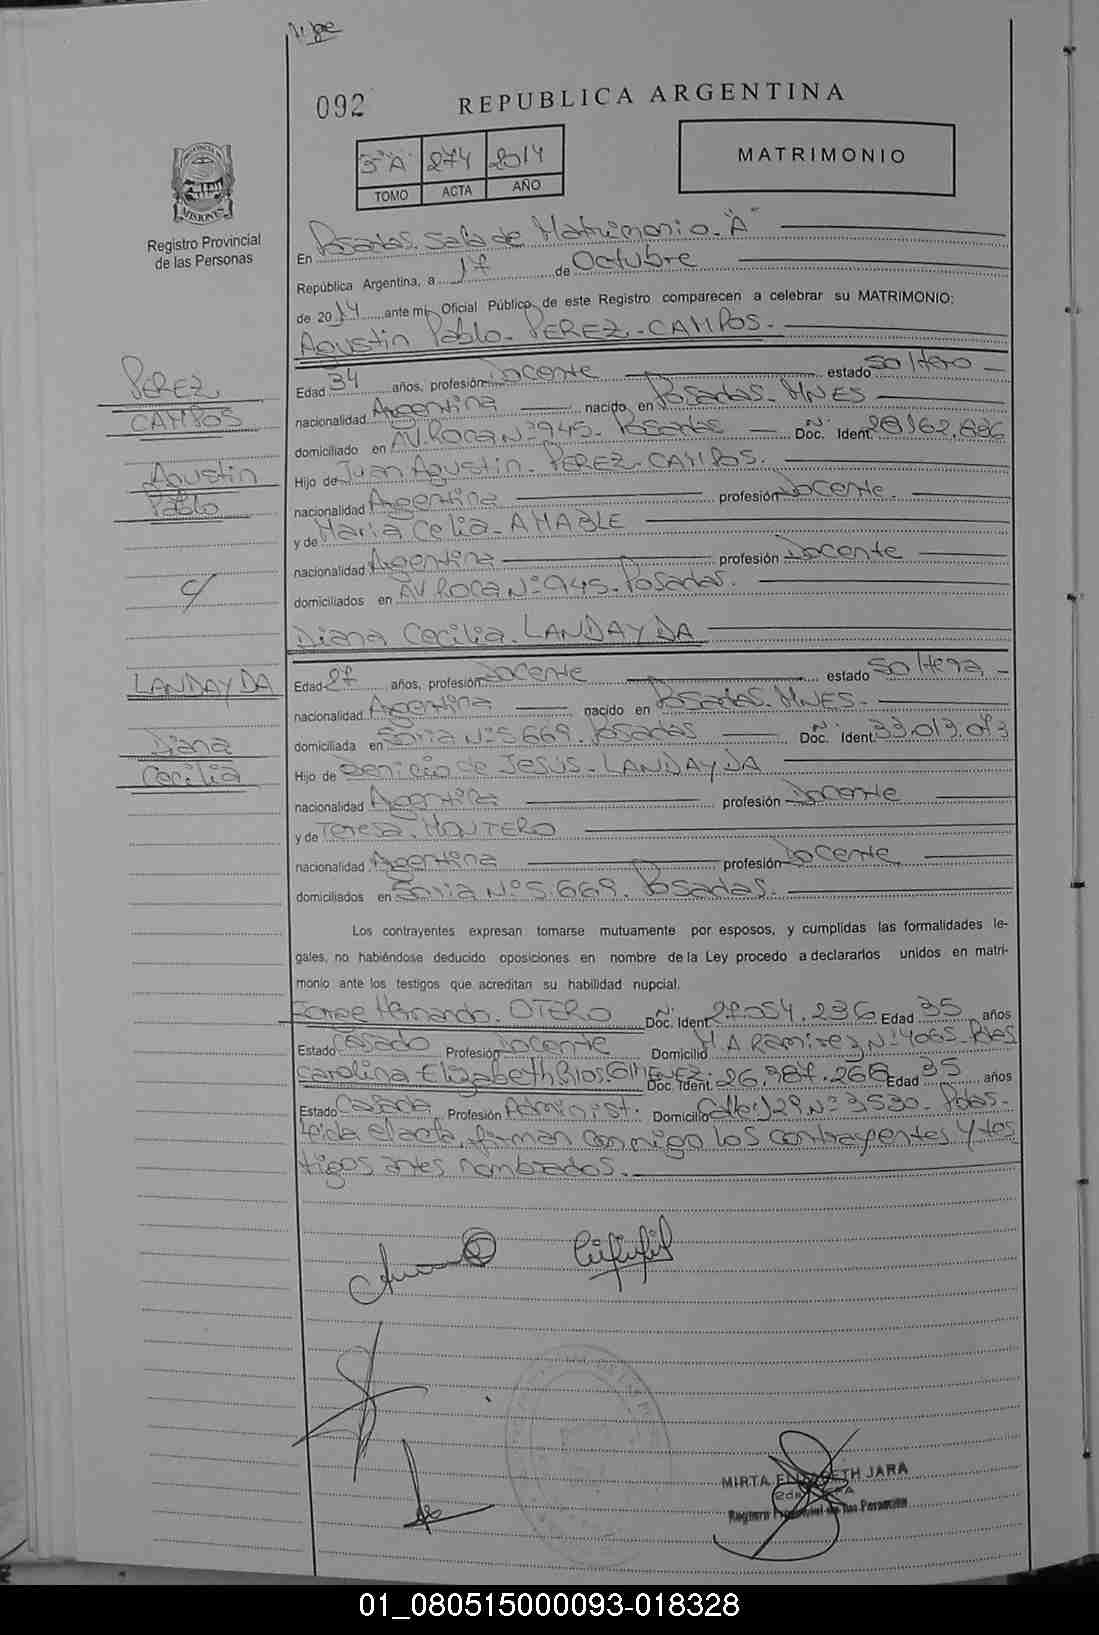 092
REPUBLICA ARGENTINA
3º"A" 274 2014
TOMO ACTA AÑO
MATRIMONIO
PROVINCIA
MISIONES
Registro Provincial
de las Personas
En Posadas. Sala de Matrimonio. "A"
República Argentina, a 17 de Octubre
de 2014 ante mi, Oficial Público, de este Registro comparecen a celebrar su MATRIMONIO:
Agustin Pablo. PEREZ-CAMPOS.
Edad 34 años, profesión Docente estado Soltero
nacionalidad Argentina nacido en Posadas. MNES
domiciliado en AV. Roca Nº 945. Posadas Nº Doc. Ident. 28.162.686
Hijo de Juan Agustin. PEREZ-CAMPOS.
nacionalidad Argentina profesión Docente.
y de Maria Celia. AMABLE
nacionalidad Argentina profesión Docente
domiciliados en AV. Roca Nº 945. Posadas.
Diana Cecilia. LANDAYDA
Edad 27 años, profesión Docente estado Soltera
nacionalidad Argentina nacido en Posadas. MNES.
domiciliada en Soria Nº 5.669. Posadas Nº Doc. Ident. 33.013.073
Hijo de Benicio de Jesús. LANDAYDA
nacionalidad Argentina profesión Docente
y de Teresa. MONTERO
nacionalidad Argentina profesión Docente.
domiciliados en Soria Nº 5.669. Posadas.
Los contrayentes expresan tomarse mutuamente por esposos, y cumplidas las formalidades le-
gales, no habiéndose deducido oposiciones en nombre de la Ley procedo a declararlos unidos en matri-
monio ante los testigos que acreditan su habilidad nupcial.
Jorge Hernando. OTERO Nº Doc. Ident. 27.054.236 Edad 35 años
Estado Casado Profesión Docente Domicilio A Ramirez Nº 4065. Pdas
Carolina Elizabeth Rios. GIMENEZ. Doc. Ident. 26.987.268 Edad 35 años
Estado Casada Profesión Administ. Domicilio Calle 129 Nº 3530. Pdas.
Leida el acta, firman conmigo los contrayentes y tes
tigos antes nombrados.
PEREZ
CAMPOS
Agustin
Pablo
c/
LANDAYDA
Diana
Cecilia
MIRTA ELIZABETH JARA
Registro Provincial de las Personas
01_080515000093-018328